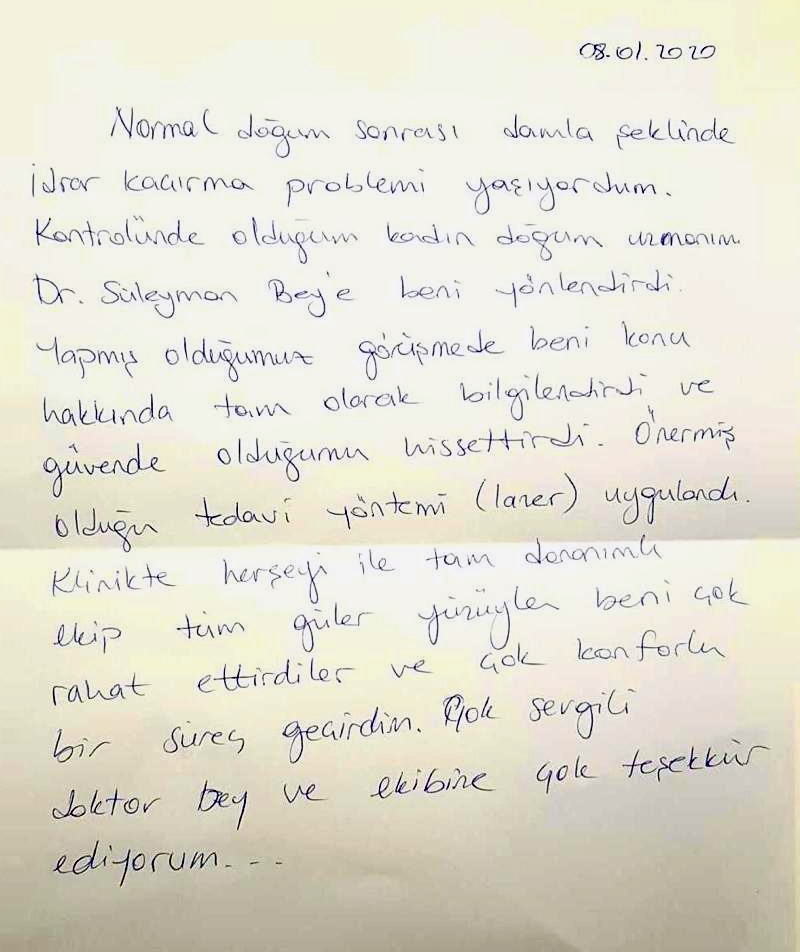 08.01.2020
Normal doğum sonrası damla şeklinde
İdrar kaçırma problemi yaşıyordum.
Kontrolünde olduğum kadın doğum uzmanım
Dr. Süleyman Bey'e beni yönlendirdi.
Yapmış olduğumuz görüşmede beni konu
hakkında tam olarak bilgilendirdi ve
güvende olduğumu hissettirdi. Önermiş
olduğu tedavi yöntemi (lazer) uygulandı.
Klinikte herşeyi ile tam donanımlı
ekip tüm güler yüzüyle beni çok
rahat ettirdiler ve çok konforlu
bir süreç geçirdim. Çok sevgili
doktor bey ve ekibine çok teşekkür
ediyorum...